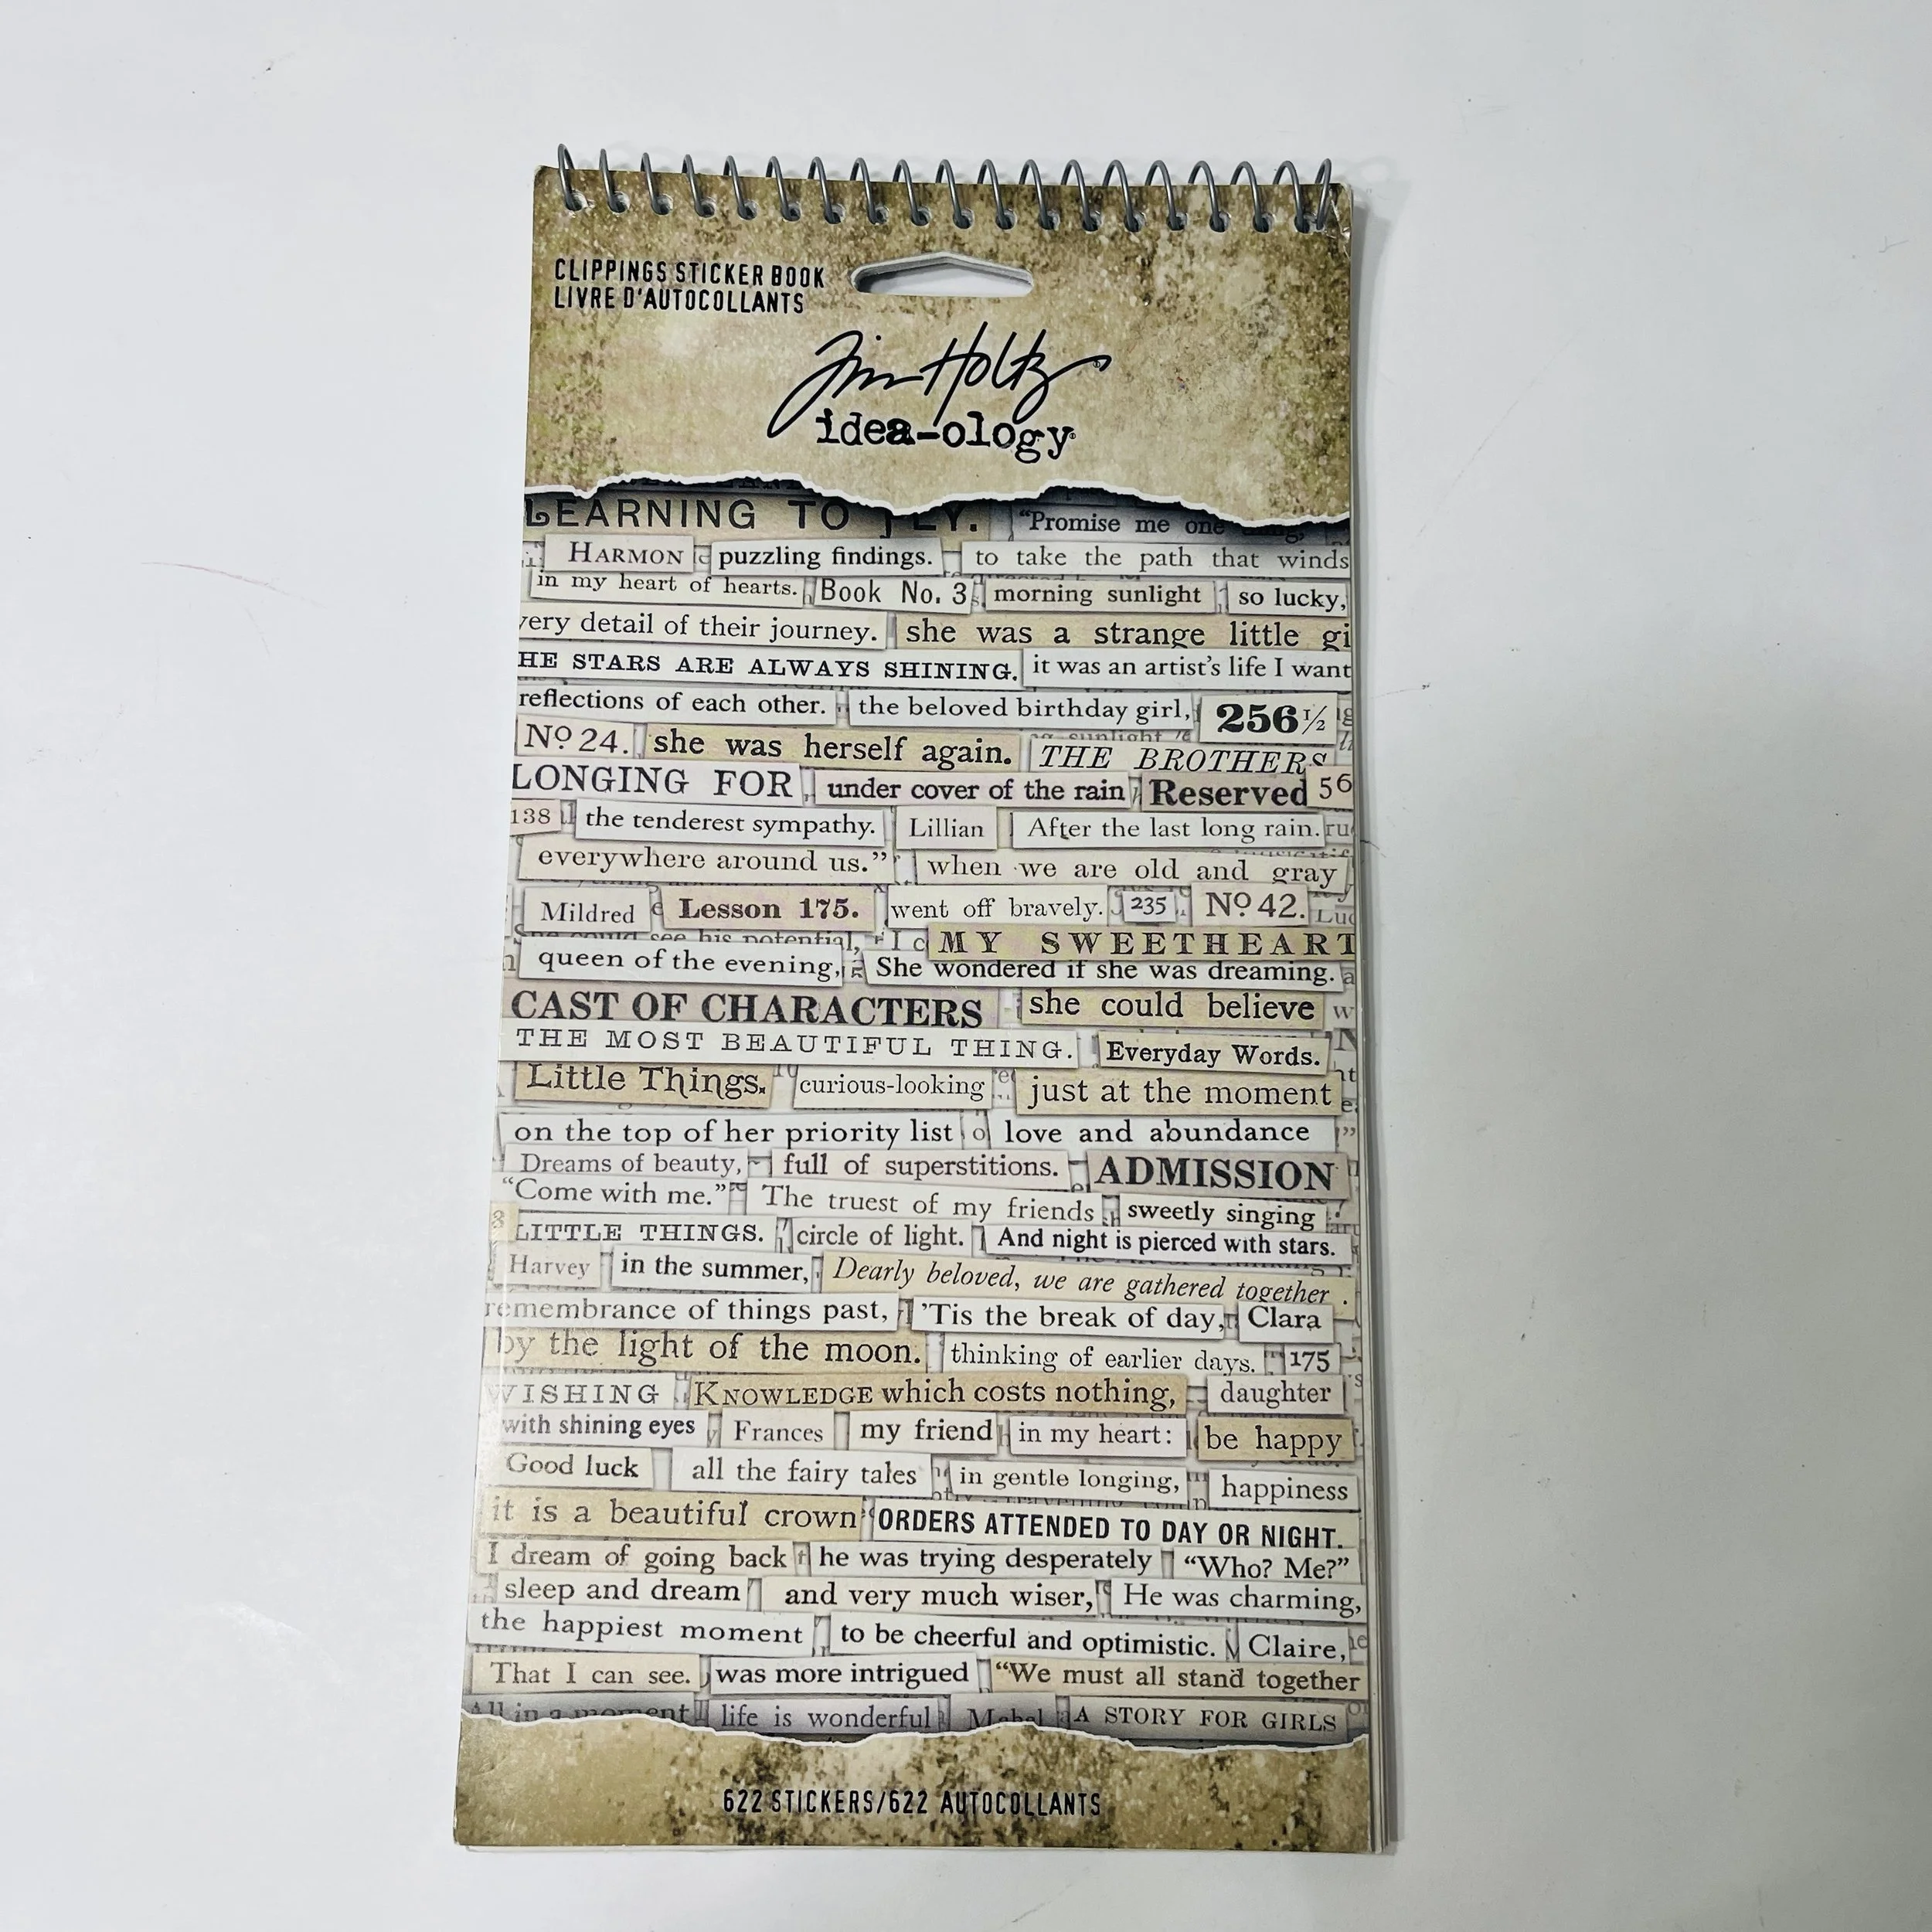 CLIPPINGS STICKER BOOK
LIVRE D'AUTOCOLLANTS
Tim Holtz
idea-ology
LEARNING TO FLY. "Promise me one thing,
HARMON puzzling findings. to take the path that winds
in my heart of hearts. Book No. 3 morning sunlight so lucky,
very detail of their journey. she was a strange little gi
HE STARS ARE ALWAYS SHINING. it was an artist's life I want
reflections of each other. the beloved birthday girl, 256 1/2
Nº 24. she was herself again. THE BROTHERS
LONGING FOR under cover of the rain Reserved 56
138 the tenderest sympathy. Lillian After the last long rain.
everywhere around us." when we are old and gray
Mildred Lesson 175. went off bravely. 235 Nº 42.
She could see his potential, I c MY SWEETHEART
queen of the evening, She wondered if she was dreaming.
CAST OF CHARACTERS she could believe
THE MOST BEAUTIFUL THING. Everyday Words.
Little Things. curious-looking just at the moment
on the top of her priority list love and abundance
Dreams of beauty, full of superstitions. ADMISSION
"Come with me." The truest of my friends sweetly singing
LITTLE THINGS. circle of light. And night is pierced with stars.
Harvey in the summer, Dearly beloved, we are gathered together
remembrance of things past, 'Tis the break of day, Clara
by the light of the moon. thinking of earlier days. 175
WISHING KNOWLEDGE which costs nothing, daughter
with shining eyes Frances my friend in my heart: be happy
Good luck all the fairy tales in gentle longing, happiness
it is a beautiful crown ORDERS ATTENDED TO DAY OR NIGHT.
I dream of going back he was trying desperately "Who? Me?"
sleep and dream and very much wiser, He was charming,
the happiest moment to be cheerful and optimistic. Claire,
That I can see. was more intrigued "We must all stand together
All in a moment life is wonderful Mabel A STORY FOR GIRLS
622 STICKERS/622 AUTOCOLLANTS